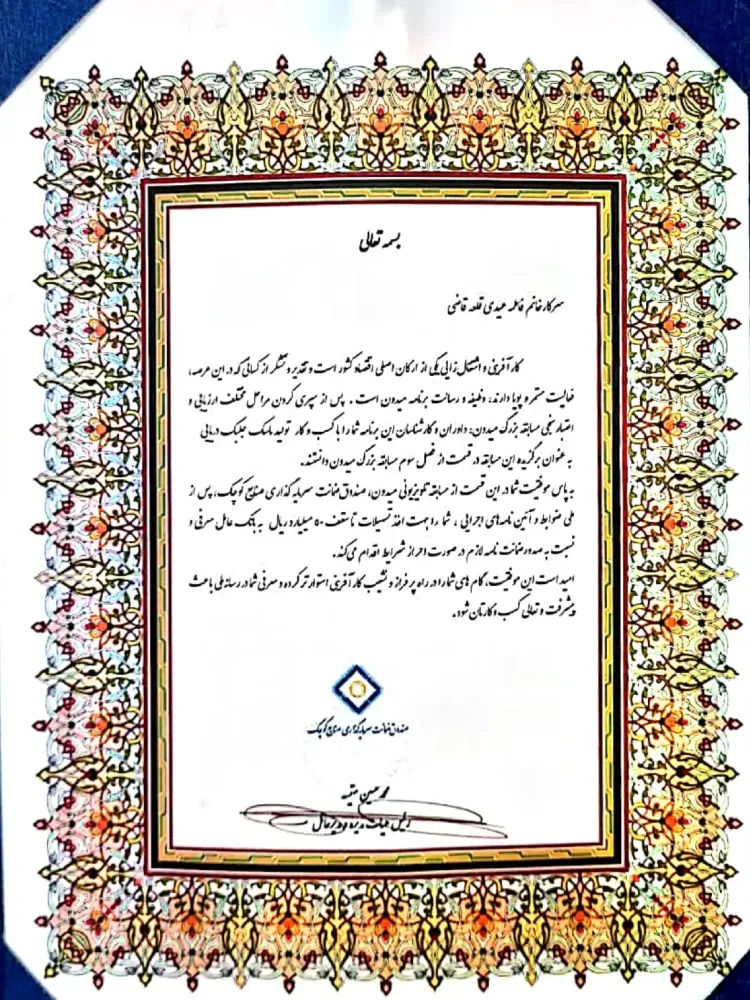 بسمه تعالی
سرکار خانم فاطمه عیدی قلعه قاضی
کارآفرینی و اشتغال زایی یکی از ارکان اصلی اقتصاد کشور است و تقدیر و تشکر از کسانی که در این عرصه،
فعالیت مستمر و پویا دارند، وظیفه و رسالت برنامه میدون است. پس از سپری کردن مراحل مختلف ارزیابی و
اعتبارسنجی مسابقه بزرگ میدون؛ داوران و کارشناسان این برنامه شما را با کسب و کار تولید ماسک جلبک دریایی
به عنوان برگزیده این مسابقه در قسمت از فصل سوم مسابقه بزرگ میدون دانستند.
به پاس موفقیت شما در این قسمت از مسابقه تلویزیونی میدون، صندوق ضمانت سرمایه گذاری صنایع کوچک، پس از
طی ضوابط و آئین نامه‌های اجرایی، شما را جهت اخذ تسهیلات تا سقف ۵۰ میلیارد ریال به بانک عامل معرفی و
نسبت به صدور ضمانت نامه لازم در صورت احراز شرایط اقدام می‌کند.
امید است این موفقیت، گام های شما را در راه پر فراز و نشیب کارآفرینی استوارتر کرده و معرفی شما در رسانه ملی باعث
پیشرفت و تعالی کسب و کارتان شود.
صندوق ضمانت سرمایه گذاری صنایع کوچک
محمد حسین مقیسه
رئیس هیات مدیره و مدیرعامل